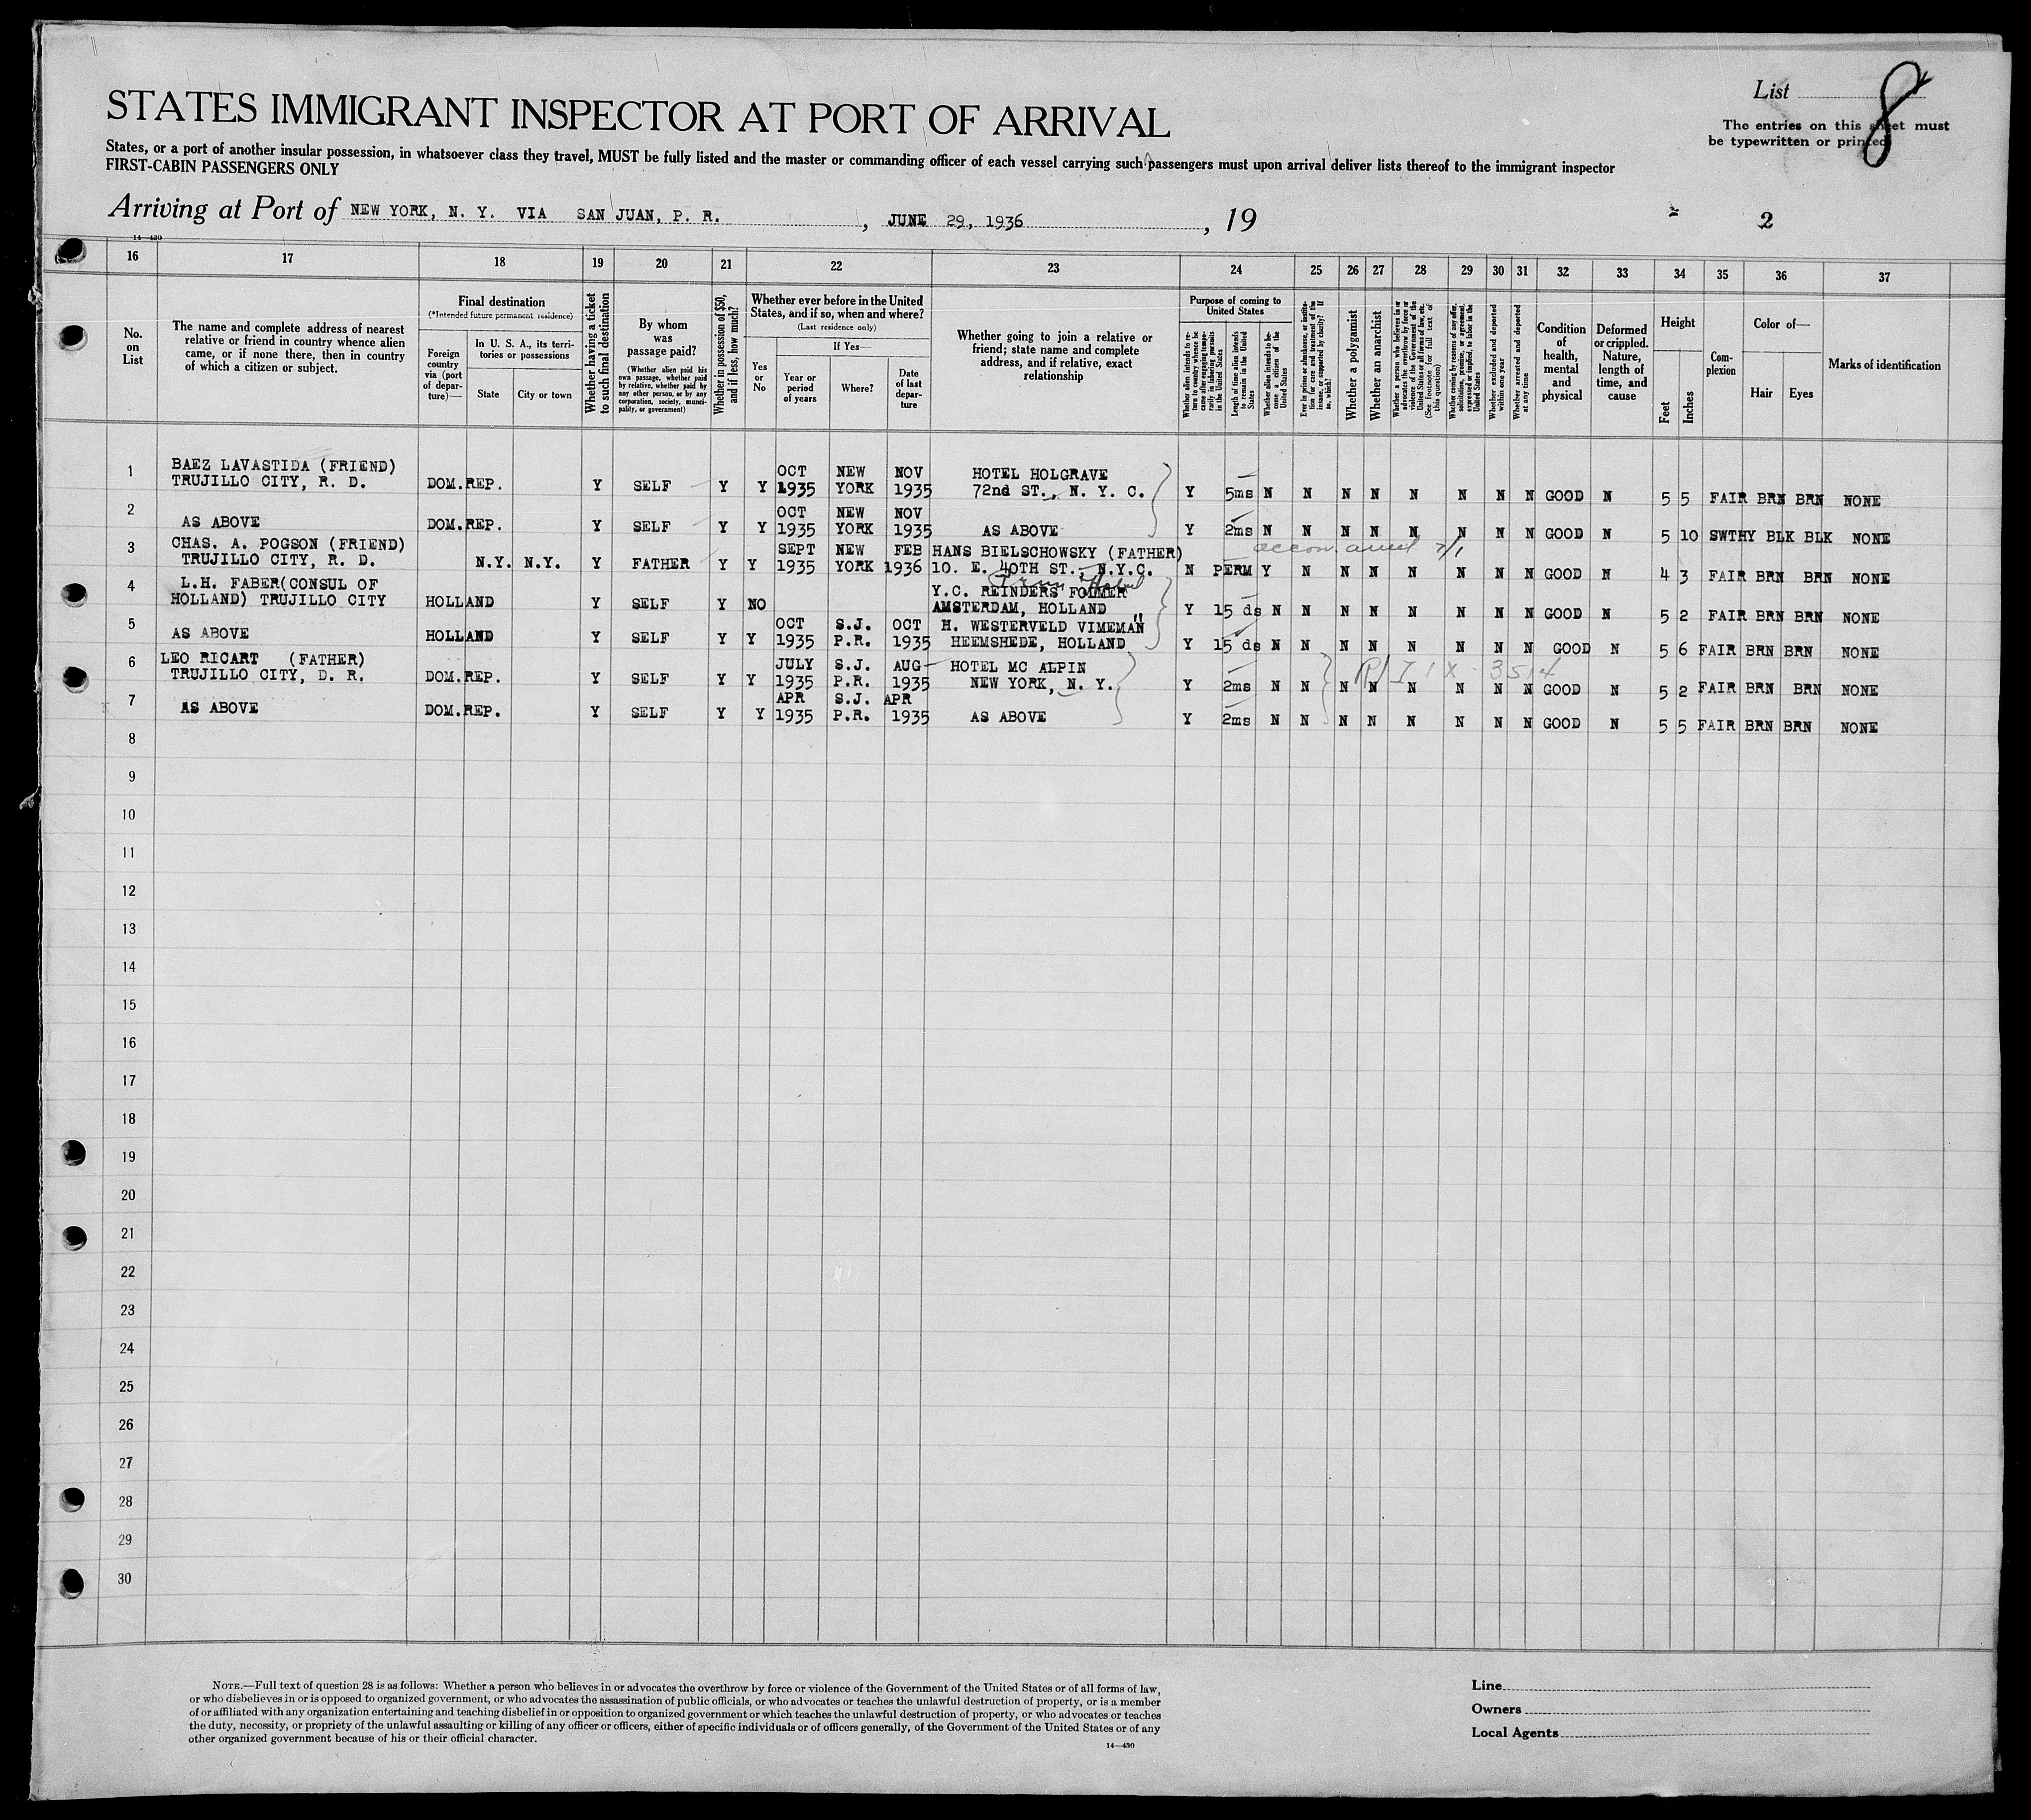 STATES IMMIGRANT INSPECTOR AT PORT OF ARRIVAL
List 8
The entries on this sheet must
be typewritten or printed
States, or a port of another insular possession, in whatsoever class they travel, MUST be fully listed and the master or commanding officer of each vessel carrying such passengers must upon arrival deliver lists thereof to the immigrant inspector
FIRST-CABIN PASSENGERS ONLY
Arriving at Port of NEW YORK, N. Y. VIA SAN JUAN, P. R. , JUNE 29, 1936 , 19
2
14—430
16 17 18 19 20 21 22 23 24 25 26 27 28 29 30 31 32 33 34 35 36 37
No. on List
The name and complete address of nearest relative or friend in country whence alien came, or if none there, then in country of which a citizen or subject.
Final destination
(*Intended future permanent residence)
Foreign country via (port of departure)—
In U. S. A., its territories or possessions
State
City or town
Whether having a ticket to such final destination
By whom was passage paid?
(Whether alien paid his own passage, whether paid by relative, whether paid by any other person, or by any corporation, society, municipality, or government)
Whether in possession of $50, and if less, how much?
Whether ever before in the United States, and if so, when and where?
(Last residence only)
Yes or No
If Yes—
Year or period of years
Where?
Date of last departure
Whether going to join a relative or friend; state name and complete address, and if relative, exact relationship
Purpose of coming to United States
Whether alien intends to return to country whence he came after engaging temporarily in laboring pursuits in the United States
Length of time alien intends to remain in the United States
Whether alien intends to become a citizen of the United States
Ever in prison or almshouse, or institution for care and treatment of the insane, or supported by charity? If so, which?
Whether a polygamist
Whether an anarchist
Whether a person who believes in or advocates the overthrow by force or violence of the Government of the United States or all forms of law, etc. (See footnote for full text of this question)
Whether coming by reasons of any offer, solicitation, promise, or agreement, expressed or implied, to labor in the United States
Whether excluded and deported within one year
Whether arrested and deported at any time
Condition of health, mental and physical
Deformed or crippled. Nature, length of time, and cause
Height
Feet
Inches
Complexion
Color of—
Hair
Eyes
Marks of identification
1 BAEZ LAVASTIDA (FRIEND) OCT NEW NOV HOTEL HOLGRAVE
TRUJILLO CITY, R. D. DOM.REP. Y SELF Y Y 1935 YORK 1935 72nd ST., N. Y. C. Y 5ms N N N N N N N N GOOD N 5 5 FAIR BRN BRN NONE
2 OCT NEW NOV
AS ABOVE DOM.REP. Y SELF Y Y 1935 YORK 1935 AS ABOVE Y 2ms N N N N N N N N GOOD N 5 10 SWTHY BLK BLK NONE
3 CHAS. A. POGSON (FRIEND) SEPT NEW FEB HANS BIELSCHOWSKY (FATHER)
TRUJILLO CITY, R. D. N.Y. N.Y. Y FATHER Y Y 1935 YORK 1936 10. E. 40TH ST., N.Y.C. N PERM Y N N N N N N N GOOD N 4 3 FAIR BRN BRN NONE
4 L.H. FABER(CONSUL OF Y.C. REINDERS FOLMER
HOLLAND) TRUJILLO CITY HOLLAND Y SELF Y NO AMSTERDAM, HOLLAND Y 15 ds N N N N N N N N GOOD N 5 2 FAIR BRN BRN NONE
5 OCT S.J. OCT H. WESTERVELD VIMEMAN
AS ABOVE HOLLAND Y SELF Y Y 1935 P.R. 1935 HEEMSHEDE, HOLLAND Y 15 ds N N N N N N N N GOOD N 5 6 FAIR BRN BRN NONE
6 LEO RICART (FATHER) JULY S.J. AUG HOTEL MC ALPIN
TRUJILLO CITY, D. R. DOM.REP. Y SELF Y Y 1935 P.R. 1935 NEW YORK, N. Y. Y 2ms N N N N N N N N GOOD N 5 2 FAIR BRN BRN NONE
7 APR S.J. APR
AS ABOVE DOM.REP. Y SELF Y Y 1935 P.R. 1935 AS ABOVE Y 2ms N N N N N N N N GOOD N 5 5 FAIR BRN BRN NONE
8
9
10
11
12
13
14
15
16
17
18
19
20
21
22
23
24
25
26
27
28
29
30
NOTE.—Full text of question 28 is as follows: Whether a person who believes in or advocates the overthrow by force or violence of the Government of the United States or of all forms of law,
or who disbelieves in or is opposed to organized government, or who advocates the assassination of public officials, or who advocates or teaches the unlawful destruction of property, or is a member
of or affiliated with any organization entertaining and teaching disbelief in or opposition to organized government or which teaches the unlawful destruction of property, or who advocates or teaches
the duty, necessity, or propriety of the unlawful assaulting or killing of any officer or officers, either of specific individuals or of officers generally, of the Government of the United States or of any
other organized government because of his or their official character.
14—430
Line
Owners
Local Agents